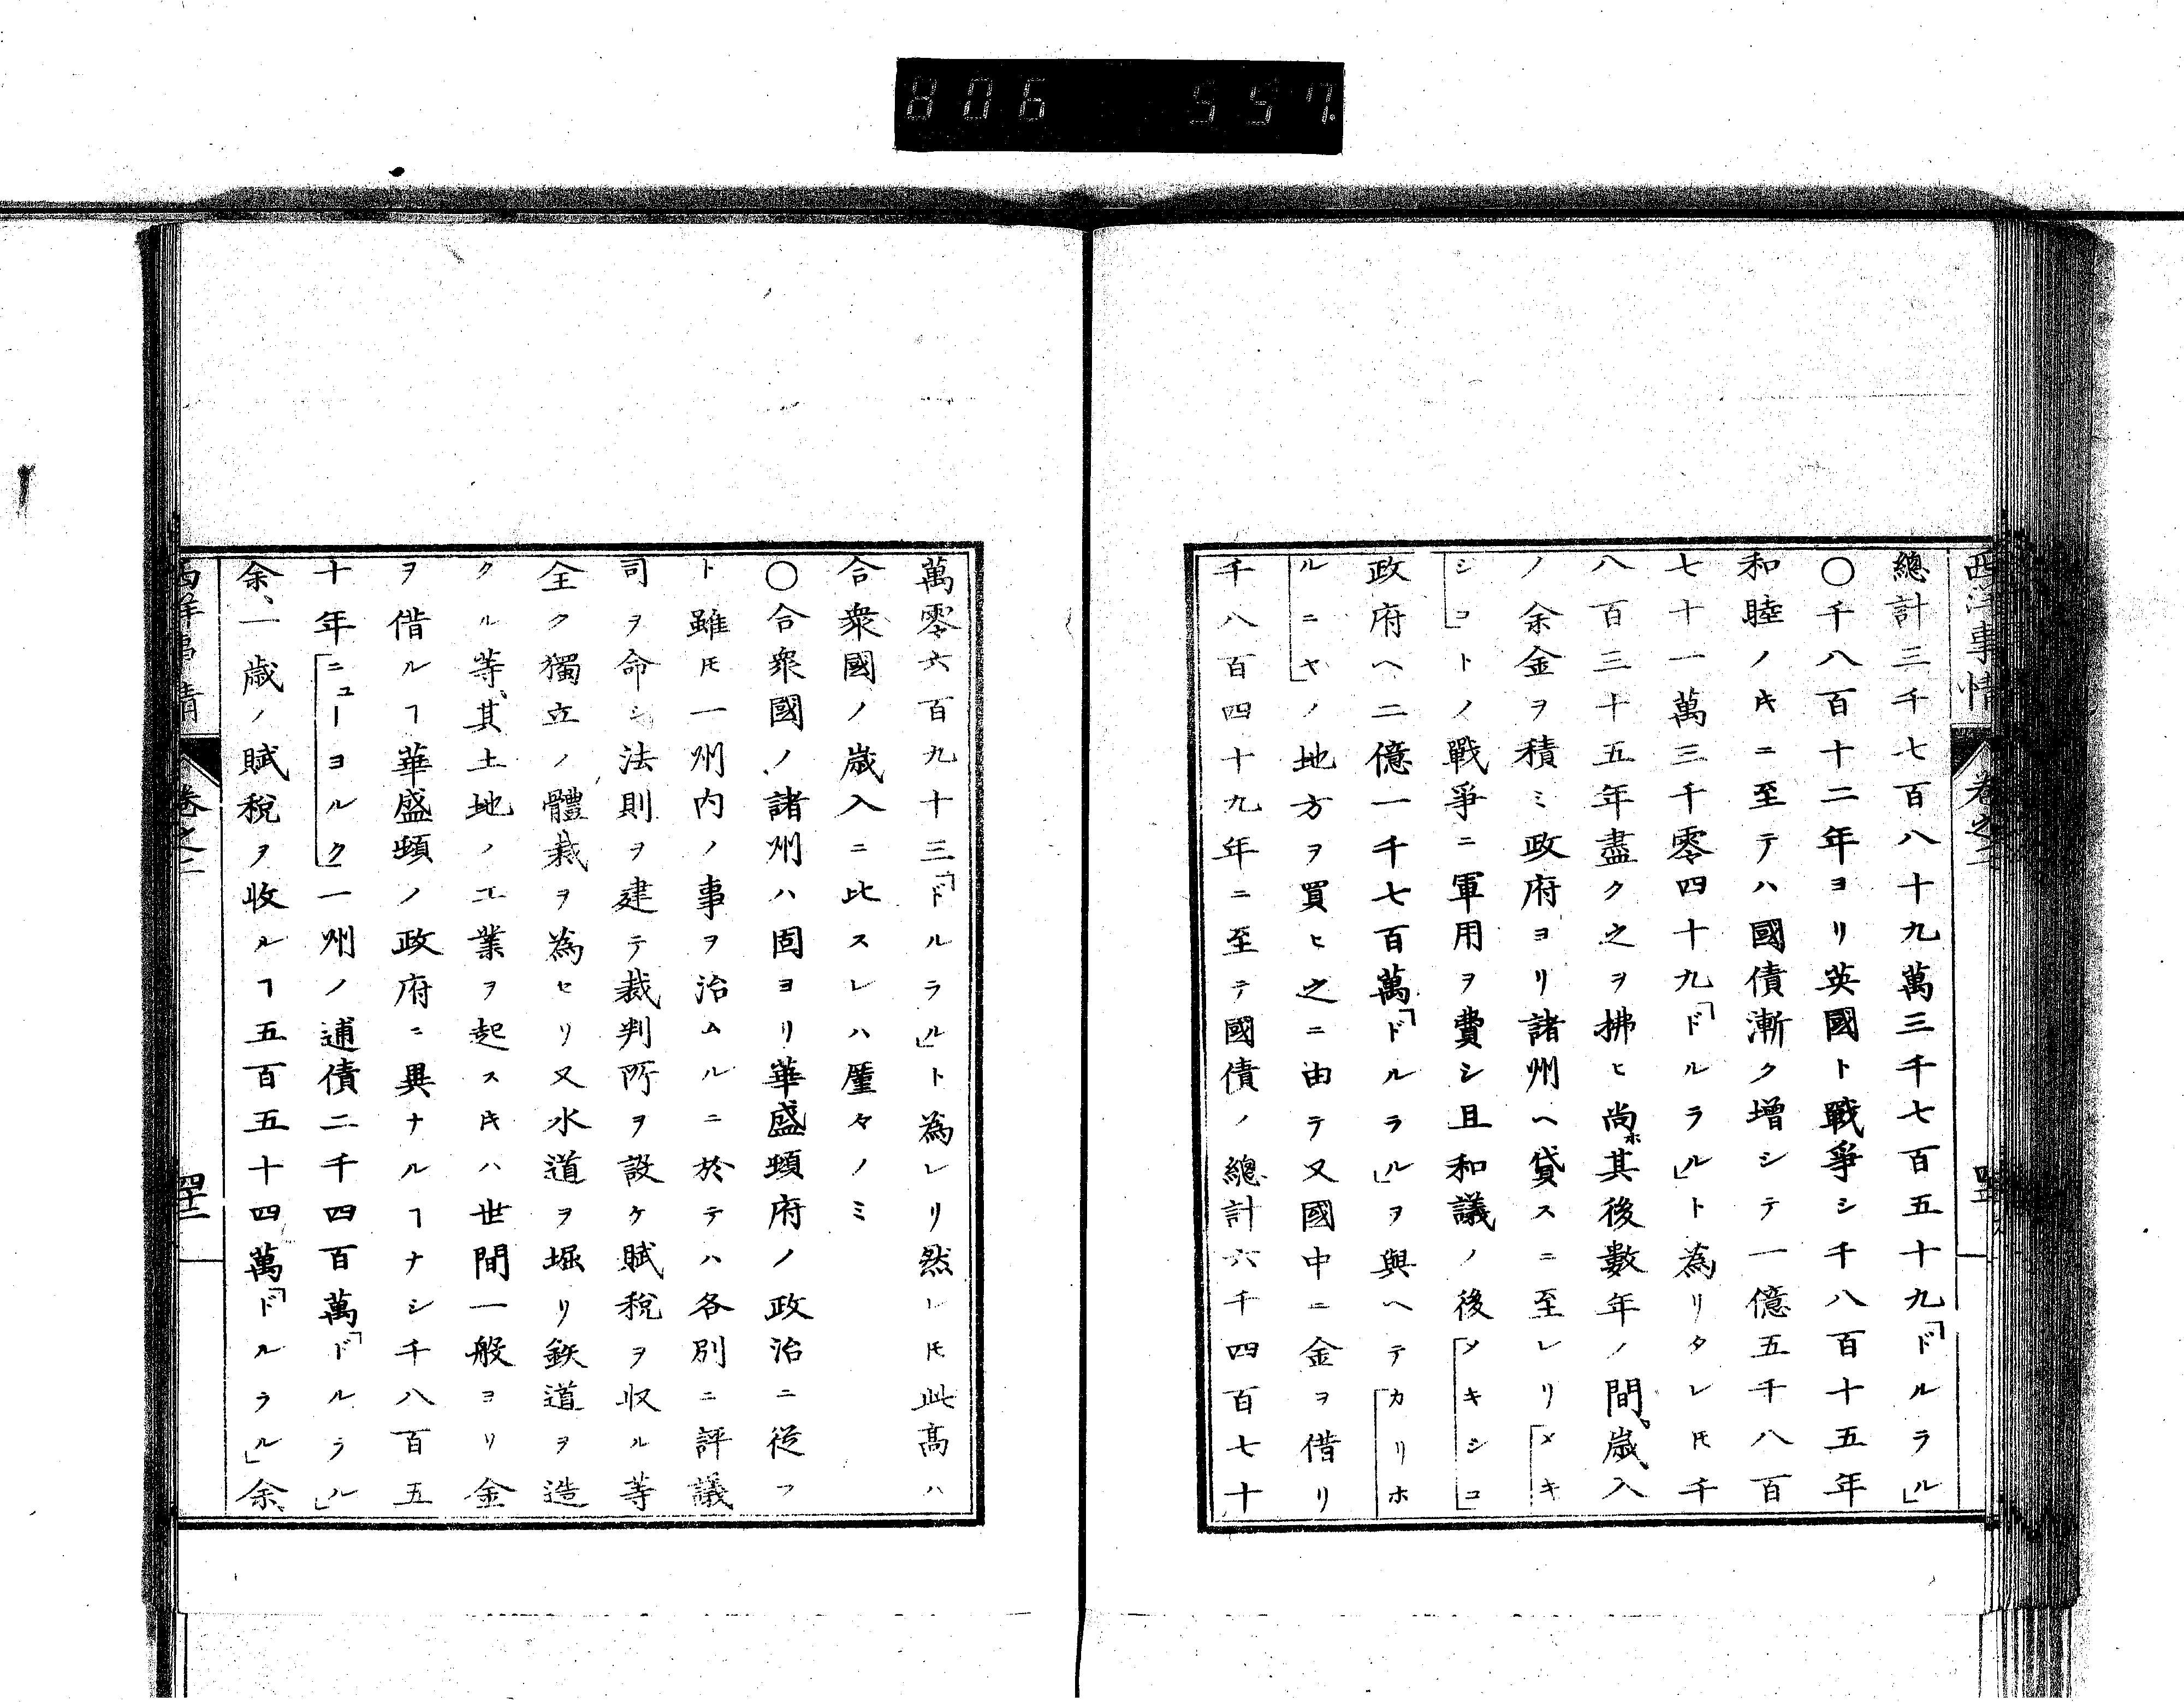 806 557.
西洋事情 卷之二
總計三千七百八十九萬三千七百五十九「ドルラル」
〇千八百十二年ヨリ英國ト戰爭シ千八百十五年
和睦ノ𪜈ニ至テハ國債漸ク增シテ一億五千八百
七十一萬三千零四十九「ドルラル」ト為リタレ𪜈千
八百三十五年盡ク之ヲ拂ヒ尚ホ其後數年ノ間、歳入
ノ余金ヲ積ミ政府ヨリ諸州ヘ貸スニ至レリ「メキ
シコ」トノ戰爭ニ軍用ヲ費シ且和議ノ後「メキシコ」
政府ヘ二億一千七百萬「ドルラル」ヲ與ヘテ「カリホ
ルニヤ」ノ地方ヲ買ヒ之ニ由テ又國中ニ金ヲ借リ
千八百四十九年ニ至テ國債ノ總計六千四百七十
萬零六百九十三「ドルラル」ト為レリ然レ𪜈此高ハ
合衆國ノ歳入ニ比スレハ厪々ノミ
〇合衆國ノ諸州ハ固ヨリ華盛頓府ノ政治ニ從フ
ト雖𪜈一州内ノ事ヲ治ムルニ於テハ各別ニ評議
司ヲ命シ法則ヲ建テ裁判所ヲ設ケ賦税ヲ収ル等
全ク獨立ノ體裁ヲ為セリ又水道ヲ堀リ鉄道ヲ造
クル等、其土地ノ工業ヲ起スキハ世間一般ヨリ金
ヲ借ルヿ華盛頓ノ政府ニ異ナルヿナシ千八百五
十年「ニューヨルク」一州ノ逋債二千四百萬「ドルラル」
余、一歳ノ賦税ヲ收ルヿ五百五十四萬「ドルラル」余、
西洋事情 卷之二 四十二